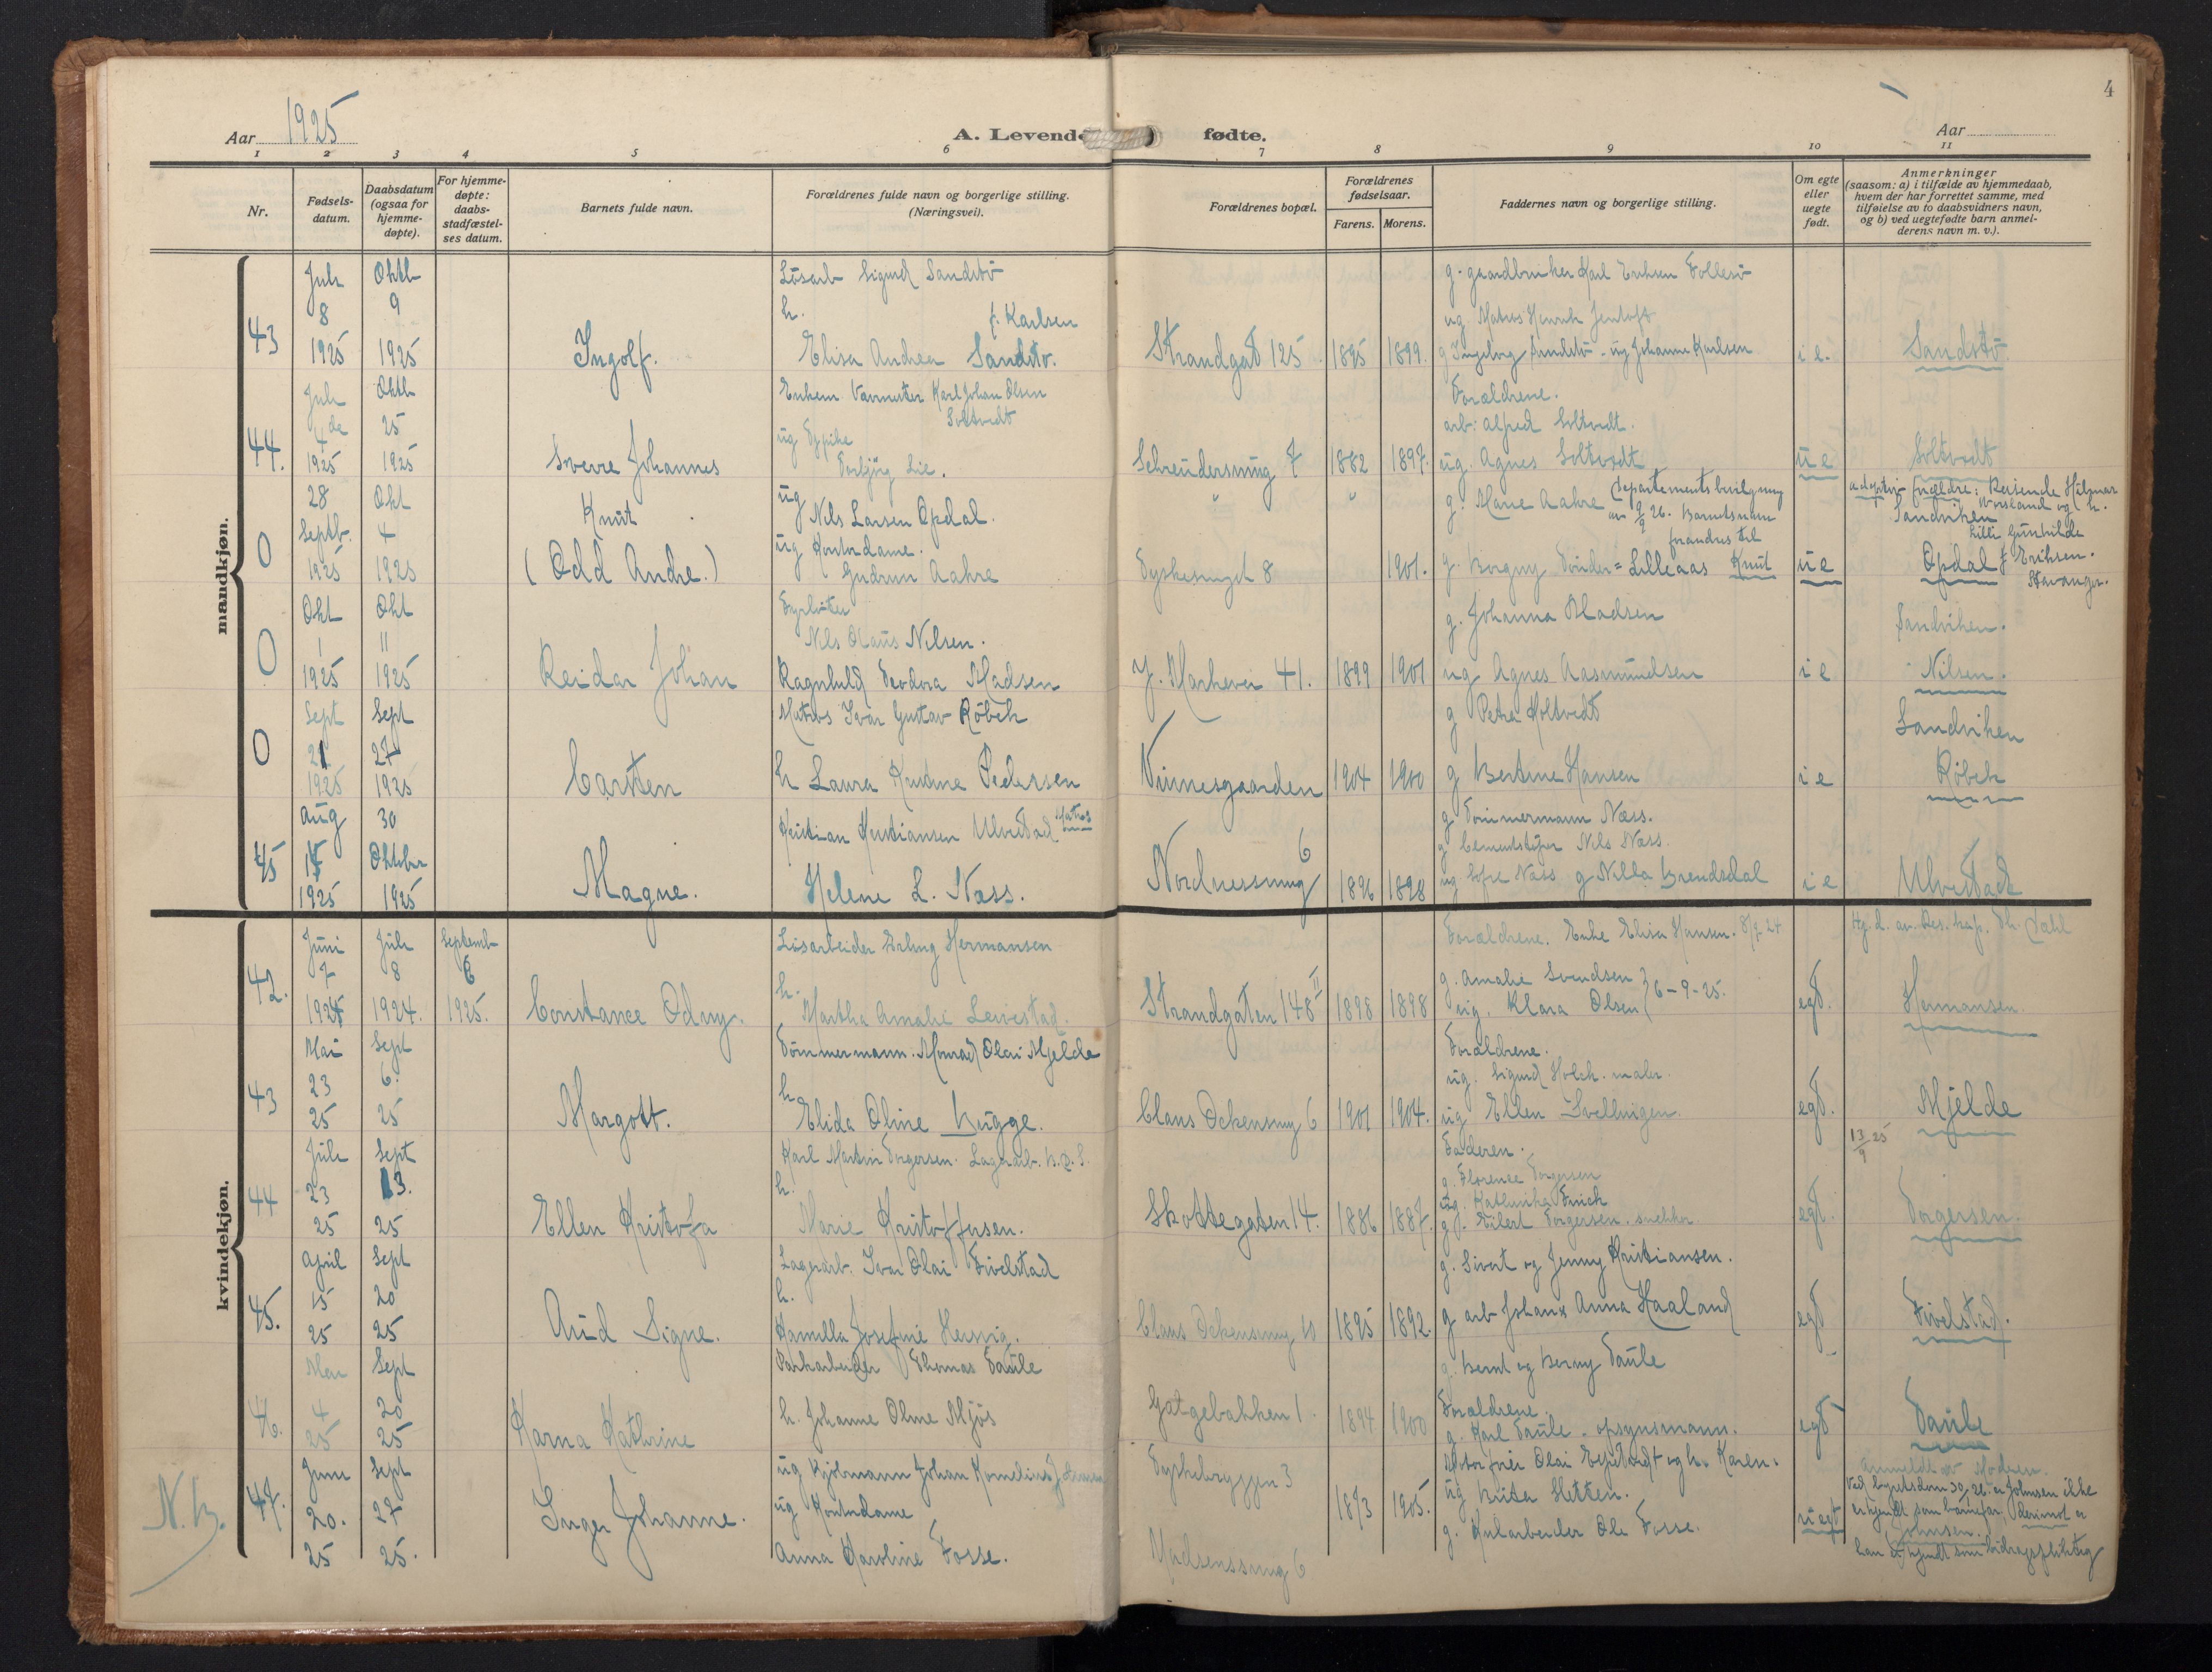 4
Aar 1925
A. Levende fødte.
Aar
1 2 3 4 5 6 7 8 9 10 11
Nr.
Fødsels-
datum.
Daabsdatum
(ogsaa for
hjemme-
døpte).
For hjemme-
døpte:
daabs-
stadfæstel-
ses datum.
Barnets fulde navn.
Forældrenes fulde navn og borgerlige stilling.
(Næringsvei).
Forældrenes bopæl.
Forældrenes
fødselsaar.
Farens. Morens.
Faddernes navn og borgerlige stilling.
Om egte
eller
uegte
født.
Anmerkninger
(saasom: a) i tilfælde av hjemmedaab,
hvem der har forrettet samme, med
tilføielse av to daabsvidners navn,
og b) ved uegtefødte barn anmel-
derens navn m. v.).
mandkjøn.
43
Juli
8
1925
Oktb
9
1925
Ingolf.
Løsarb Sigurd Sandstø
h. f. Karlsen
Elisa Andrea Sandstø.
Strandgat 125. 1895 1899.
g. gaardbruker Karl Eriksen
ug. Matros Henrik Jentoft
g Ingeborg Sandstø - ug Johanne Karlsen
i e.
Sandstø.
44.
Juli
4de
1925
Oktb
25
1925
Sverre Johannes
Enkem. Karl Johan Olsen
Soltvedt
ug
Torbjørg Lie.
7 1882 1897.
Forældrene.
arb: Alfred Soltvedt.
ug. Agnes Soltvedt
u e
Soltvedt
0
28
Septb.
1925
Okt
4
1925
Knut
(Odd Andre.)
ug
Nils Larsen Opdal.
ug Kontordame.
Gudrun Aahre
8 1901.
g. Marie Aahre (Departements bevilgning
av 9/9 26. Barnets navn
forandres til
g. Borgny Lilleaas Knut
u e
adoptivforældre: Reisende Hilmar
og h.
Sandviken
Lilli Gunhilde
Opdal f Eriksen.
Stavanger.
0
Okt
1
1925
Okt
11
1925
Reidar Johan
Fyrbøter
Nils Olaus Nilsen.
Ragnhild Teodora Madsen
41. 1899 1901
g. Johanna Madsen
ug Agnes Aasmundsen
i e
Sandviken.
Nilsen.
0
Sept
21
1925
Sept
27
1925
Carsten
Matros Ivar Gustav Røbek
h Laura Kristine Pedersen
Vinnesgaarden 1904 1900
g Petra Holtvedt
g Bertine Hansen
i e
Sandviken
Røbek
45
Aug
15
1925
30
Oktober
1925
Magne.
Kristian Kristiansen Ulvestad Matros
Helene L. Næss.
Nordnessmug 6 1896 1898
g Tømmermann Næss.
g Cementstøper Nils Næss.
ug Sofie Næss g Nilla Brendsdal
i e
Ulvestad
kvindekjøn.
42.
Juni
7
1924
Juli
8
1924.
Septemb
6
1925.
Constance Odny.
Løsarbeider Erling Hermansen
h.
Martha Amalie Leivestad.
Strandgaten 148 II 1898 1898
Forældrene. Enke Elisa Hansen. 8/7-24
g. Amalie Svendsen } 6-9-25.
ug. Klara Olsen
egt.
Hj. d. av Res. kap. Th. Dahl
Hermansen.
43
Mai
23
25
Sept
6.
25
Margott.
Tømmermann. Monrad Olai Mjelde
h
Elida Oline Bugge.
Claus Ockensmug 6 1901 1904.
Forældrene.
ug. Sigurd Holck. maler.
ug Ellen
egt.
Mjelde
44
Juli
23
25
Sept
13.
25
Ellen Kristofa
Karl Martin Torgersen. Lagerarb. B.D.S.
h.
Marie Kristoffersen.
Skottegaten 14. 1886 1887.
Faderen.
g. Florence Torgersen
ug. Kathinka
g. Eilert Torgersen. snekker
egt.
13/9 25
Torgersen.
45.
April
15
25
Sept
20
25
Aud Signe.
Lagerarb. Ivar Olai Fivelstad
h.
Kamilla Josefine
Claus Ockensmug 10 1895 1892.
g. Sivert og Jenny Kristiansen.
g arb Johan & Anna Haaland
egt
Fivelstad.
46.
4
25
Sept
20
25
Karna Kathrine
Parkarbeider Thomas Taule
h. Johanne Oline Mjøs
Galgebakken 1. 1894 1900
g. Bernt og Borny Taule
Forældrene.
g. Karl Taule - opsynsmann.
egt
Taule
N.B.
47.
Juni
20.
25
Sept
27
25.
Inger Johanne.
ug Kjølmann Johan Kornelius Johnsen
ug Kontordame
Anna Karoline Fosse.
Tyskebryggen 3
Madsenssmug 6
1873 1905.
Motorfører Olai og h. Karen.
ug Brita Sletten.
g. Kularbeider Ole Fosse.
uegt
Anmeldt av Moderen.
Ved Johnsen ikke
erkjendt som barnefar, derimot er
Johnsen.
han erkjendt som bidragspliktig